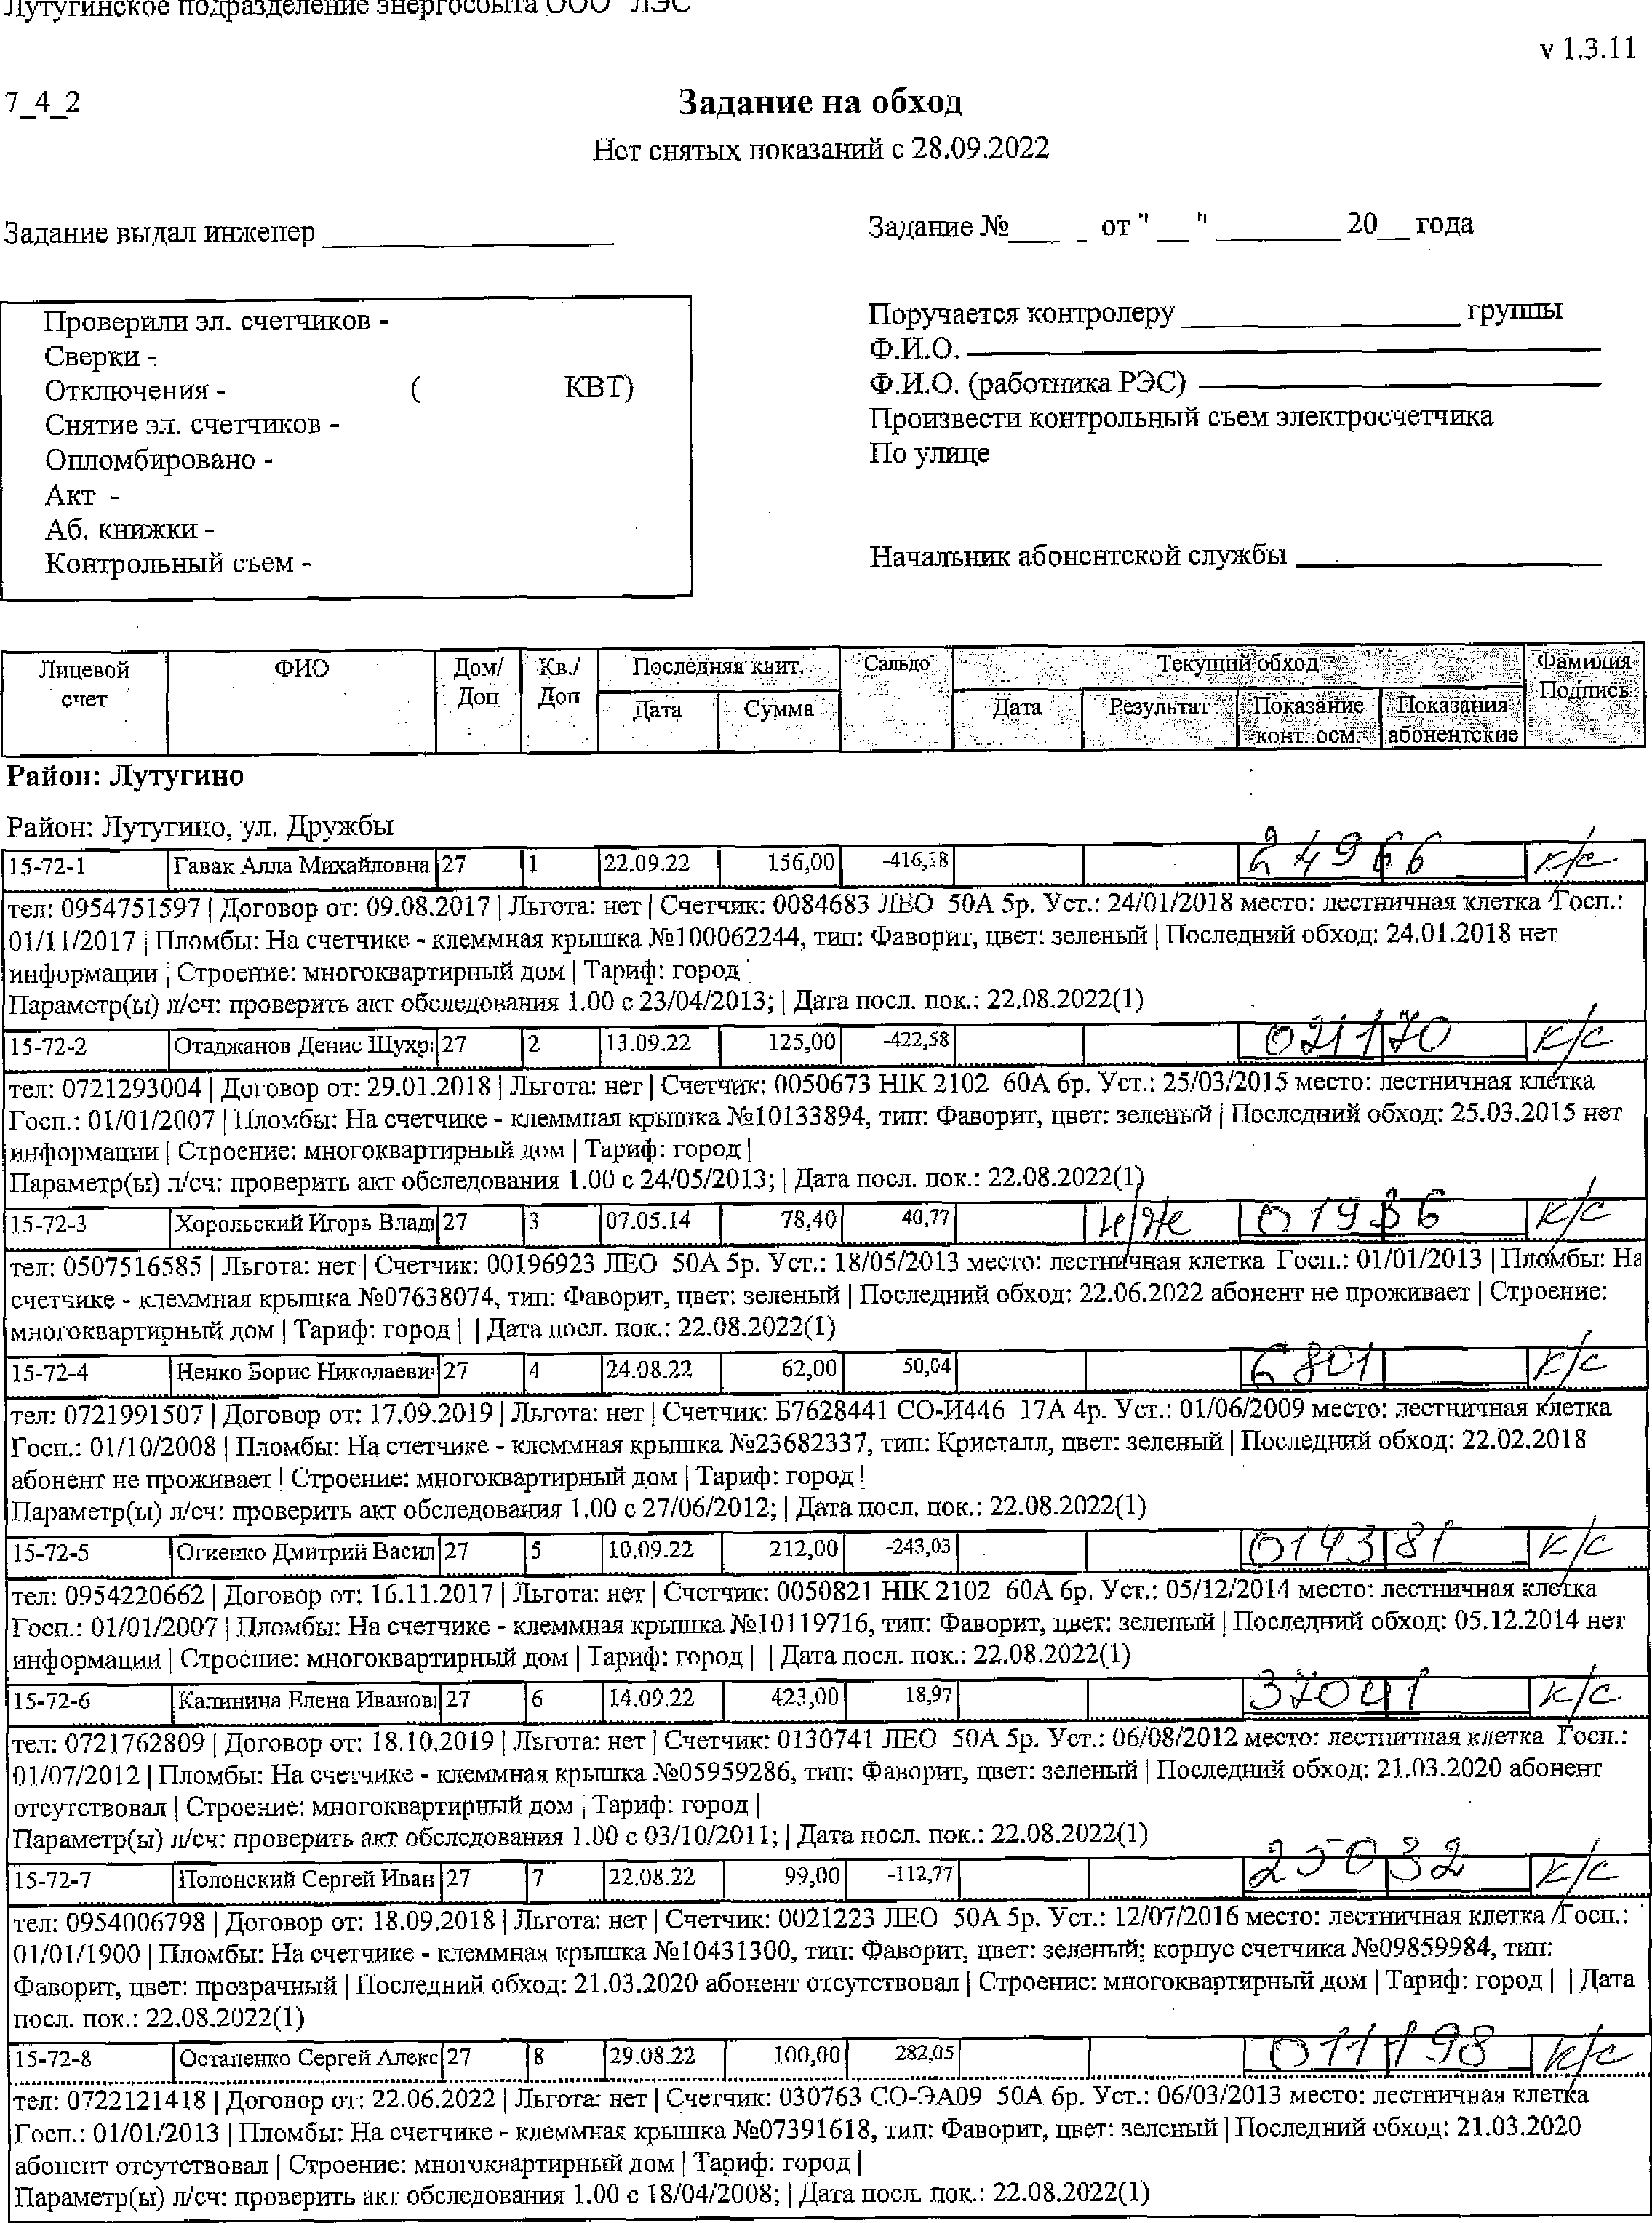 Лутугинское подразделение энергосбыта ООО "ЛЭС"
v 1.3.11
7_4_2
Задание на обход
Нет снятых показаний с 28.09.2022
Задание выдал инженер
Задание №_____ от "__" ________ 20__ года
Проверили эл. счетчиков -
Сверки -
Отключения - ( КВТ)
Снятие эл. счетчиков -
Опломбировано -
Акт -
Аб. книжки -
Контрольный съем -
Поручается контролеру ________ группы
Ф.И.О.
Ф.И.О. (работника РЭС)
Произвести контрольный съем электросчетчика
По улице
Начальник абонентской службы
Лицевой счет | ФИО | Дом/ Доп | Кв./ Доп | Последняя квит. | Сальдо | Текущий обход | Фамилия Подпись
Дата | Сумма | Дата | Результат | Показание конт. осм. | Показания абонентские
Район: Лутугино
Район: Лутугино, ул. Дружбы
15-72-1 Гавак Алла Михайловна 27 1 22.09.22 156,00 -416,18 24966 к/с
тел: 0954751597 | Договор от: 09.08.2017 | Льгота: нет | Счетчик: 0084683 ЛЕО 50А 5р. Уст.: 24/01/2018 место: лестничная клетка Госп.:
01/11/2017 | Пломбы: На счетчике - клеммная крышка №100062244, тип: Фаворит, цвет: зеленый | Последний обход: 24.01.2018 нет
информации | Строение: многоквартирный дом | Тариф: город |
Параметр(ы) л/сч: проверить акт обследования 1.00 с 23/04/2013; | Дата посл. пок.: 22.08.2022(1)
15-72-2 Отаджанов Денис Шухр 27 2 13.09.22 125,00 -422,58 021170 к/с
тел: 0721293004 | Договор от: 29.01.2018 | Льгота: нет | Счетчик: 0050673 НІК 2102 60А 6р. Уст.: 25/03/2015 место: лестничная клетка
Госп.: 01/01/2007 | Пломбы: На счетчике - клеммная крышка №10133894, тип: Фаворит, цвет: зеленый | Последний обход: 25.03.2015 нет
информации | Строение: многоквартирный дом | Тариф: город |
Параметр(ы) л/сч: проверить акт обследования 1.00 с 24/05/2013; | Дата посл. пок.: 22.08.2022(1)
15-72-3 Хорольский Игорь Влад 27 3 07.05.14 78,40 40,77 н/ж 01936 к/с
тел: 0507516585 | Льгота: нет | Счетчик: 00196923 ЛЕО 50А 5р. Уст.: 18/05/2013 место: лестничная клетка Госп.: 01/01/2013 | Пломбы: На
счетчике - клеммная крышка №07638074, тип: Фаворит, цвет: зеленый | Последний обход: 22.06.2022 абонент не проживает | Строение:
многоквартирный дом | Тариф: город | | Дата посл. пок.: 22.08.2022(1)
15-72-4 Ненко Борис Николаеви 27 4 24.08.22 62,00 50,04 6801 к/с
тел: 0721991507 | Договор от: 17.09.2019 | Льгота: нет | Счетчик: Б7628441 СО-И446 17А 4р. Уст.: 01/06/2009 место: лестничная клетка
Госп.: 01/10/2008 | Пломбы: На счетчике - клеммная крышка №23682337, тип: Кристалл, цвет: зеленый | Последний обход: 22.02.2018
абонент не проживает | Строение: многоквартирный дом | Тариф: город |
Параметр(ы) л/сч: проверить акт обследования 1.00 с 27/06/2012; | Дата посл. пок.: 22.08.2022(1)
15-72-5 Огиенко Дмитрий Васил 27 5 10.09.22 212,00 -243,03 014381 к/с
тел: 0954220662 | Договор от: 16.11.2017 | Льгота: нет | Счетчик: 0050821 НІК 2102 60А 6р. Уст.: 05/12/2014 место: лестничная клетка
Госп.: 01/01/2007 | Пломбы: На счетчике - клеммная крышка №10119716, тип: Фаворит, цвет: зеленый | Последний обход: 05.12.2014 нет
информации | Строение: многоквартирный дом | Тариф: город | | Дата посл. пок.: 22.08.2022(1)
15-72-6 Калинина Елена Иванов 27 6 14.09.22 423,00 18,97 37041 к/с
тел: 0721762809 | Договор от: 18.10.2019 | Льгота: нет | Счетчик: 0130741 ЛЕО 50А 5р. Уст.: 06/08/2012 место: лестничная клетка Госп.:
01/07/2012 | Пломбы: На счетчике - клеммная крышка №05959286, тип: Фаворит, цвет: зеленый | Последний обход: 21.03.2020 абонент
отсутствовал | Строение: многоквартирный дом | Тариф: город |
Параметр(ы) л/сч: проверить акт обследования 1.00 с 03/10/2011; | Дата посл. пок.: 22.08.2022(1)
15-72-7 Полонский Сергей Иван 27 7 22.08.22 99,00 -112,77 25032 к/с
тел: 0954006798 | Договор от: 18.09.2018 | Льгота: нет | Счетчик: 0021223 ЛЕО 50А 5р. Уст.: 12/07/2016 место: лестничная клетка Госп.:
01/01/1900 | Пломбы: На счетчике - клеммная крышка №10431300, тип: Фаворит, цвет: зеленый; корпус счетчика №09859984, тип:
Фаворит, цвет: прозрачный | Последний обход: 21.03.2020 абонент отсутствовал | Строение: многоквартирный дом | Тариф: город | | Дата
посл. пок.: 22.08.2022(1)
15-72-8 Остапенко Сергей Алекс 27 8 29.08.22 100,00 282,05 011198 к/с
тел: 0722121418 | Договор от: 22.06.2022 | Льгота: нет | Счетчик: 030763 СО-ЭА09 50А 6р. Уст.: 06/03/2013 место: лестничная клетка
Госп.: 01/01/2013 | Пломбы: На счетчике - клеммная крышка №07391618, тип: Фаворит, цвет: зеленый | Последний обход: 21.03.2020
абонент отсутствовал | Строение: многоквартирный дом | Тариф: город |
Параметр(ы) л/сч: проверить акт обследования 1.00 с 18/04/2008; | Дата посл. пок.: 22.08.2022(1)